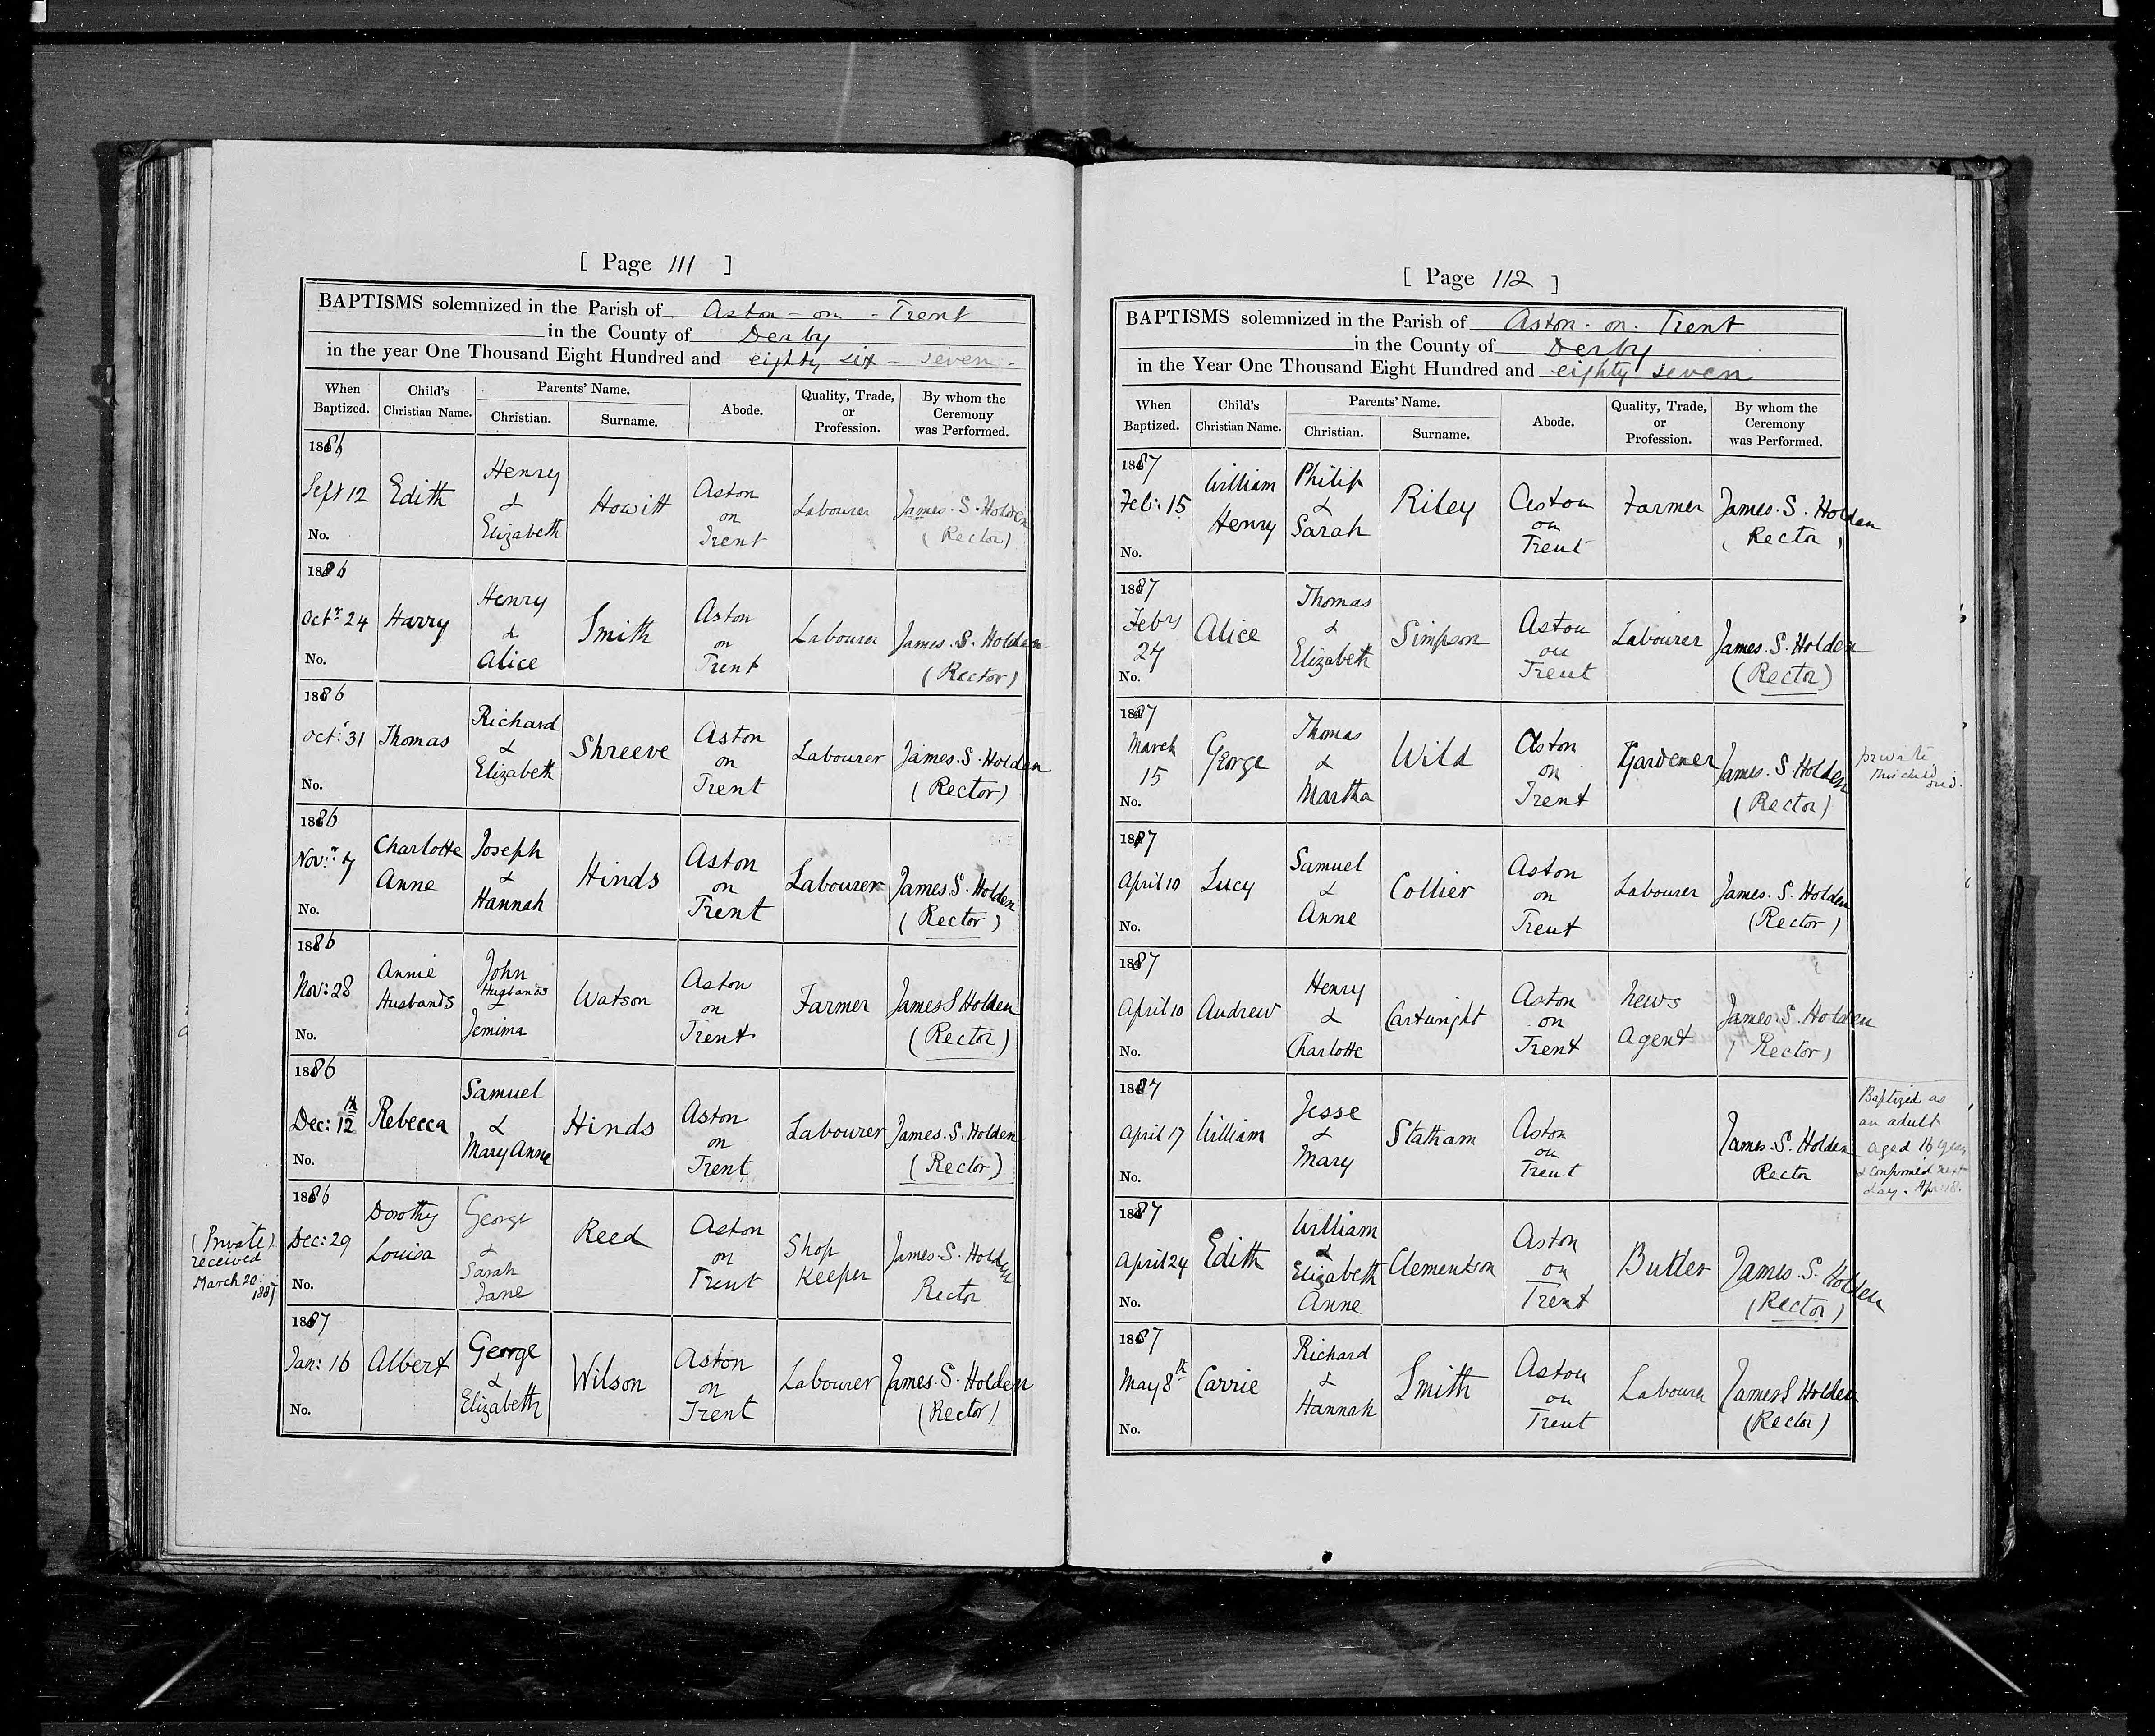 [ Page 111 ]
BAPTISMS solemnized in the Parish of Aston - on - Trent
in the County of Derby
in the year One Thousand Eight Hundred and eighty six - seven -
When Baptized. Child's Christian Name. Parents' Name. Christian. Surname. Abode. Quality, Trade, or Profession. By whom the Ceremony was Performed.
1886
Sept 12 Edith Henry & Elizabeth Howitt Aston on Trent Labourer James. S. Holden (Rector)
No.
1886
Octr 24 Harry Henry & Alice Smith Aston on Trent Labourer James. S. Holden (Rector)
No.
1886
Octr: 31 Thomas Richard & Elizabeth Shreeve Aston on Trent Labourer James. S. Holden (Rector)
No.
1886
Novr: 7 Charlotte Anne Joseph & Hannah Hinds Aston on Trent Labourer James. S. Holden (Rector)
No.
1886
Nov: 28 Annie Husbands John Husbands & Jemima Watson Aston on Trent Farmer James S Holden (Rector)
No.
1886
Dec: 12th Rebecca Samuel & Mary Anne Hinds Aston on Trent Labourer James. S. Holden (Rector)
No.
1886
(Private) received March 20. 1887
Dec: 29 Dorothy Louisa George & Sarah Jane Reed Aston on Trent Shop Keeper James. S. Holden Rector
No.
1887
Jan: 16 Albert George & Elizabeth Wilson Aston on Trent Labourer James. S. Holden (Rector)
No.
[ Page 112 ]
BAPTISMS solemnized in the Parish of Aston. on. Trent
in the County of Derby
in the Year One Thousand Eight Hundred and eighty seven
When Baptized. Child's Christian Name. Parents' Name. Christian. Surname. Abode. Quality, Trade, or Profession. By whom the Ceremony was Performed.
1887
Feb: 15 William Henry Philip & Sarah Riley Aston on Trent Farmer James. S. Holden (Rector)
No.
1887
Feby 27 Alice Thomas & Elizabeth Simpson Aston on Trent Labourer James. S. Holden (Rector)
No.
1887
March 15 George Thomas & Martha Wild Aston on Trent Gardener James. S. Holden (Rector)
private this child died.
No.
1887
April 10 Lucy Samuel & Anne Collier Aston on Trent Labourer James. S. Holden (Rector)
No.
1887
April 10 Andrew Henry & Charlotte Cartwright Aston on Trent News Agent James. S. Holden (Rector)
No.
1887
April 17 William Jesse & Mary Statham Aston on Trent James. S. Holden Rector
Baptized as an adult aged 16 years & confirmed next day. Apr: 18.
No.
1887
April 24 Edith William & Elizabeth Anne Clementson Aston on Trent Butler James. S. Holden (Rector)
No.
1887
May 8th Carrie Richard & Hannah Smith Aston on Trent Labourer James S Holden (Rector)
No.